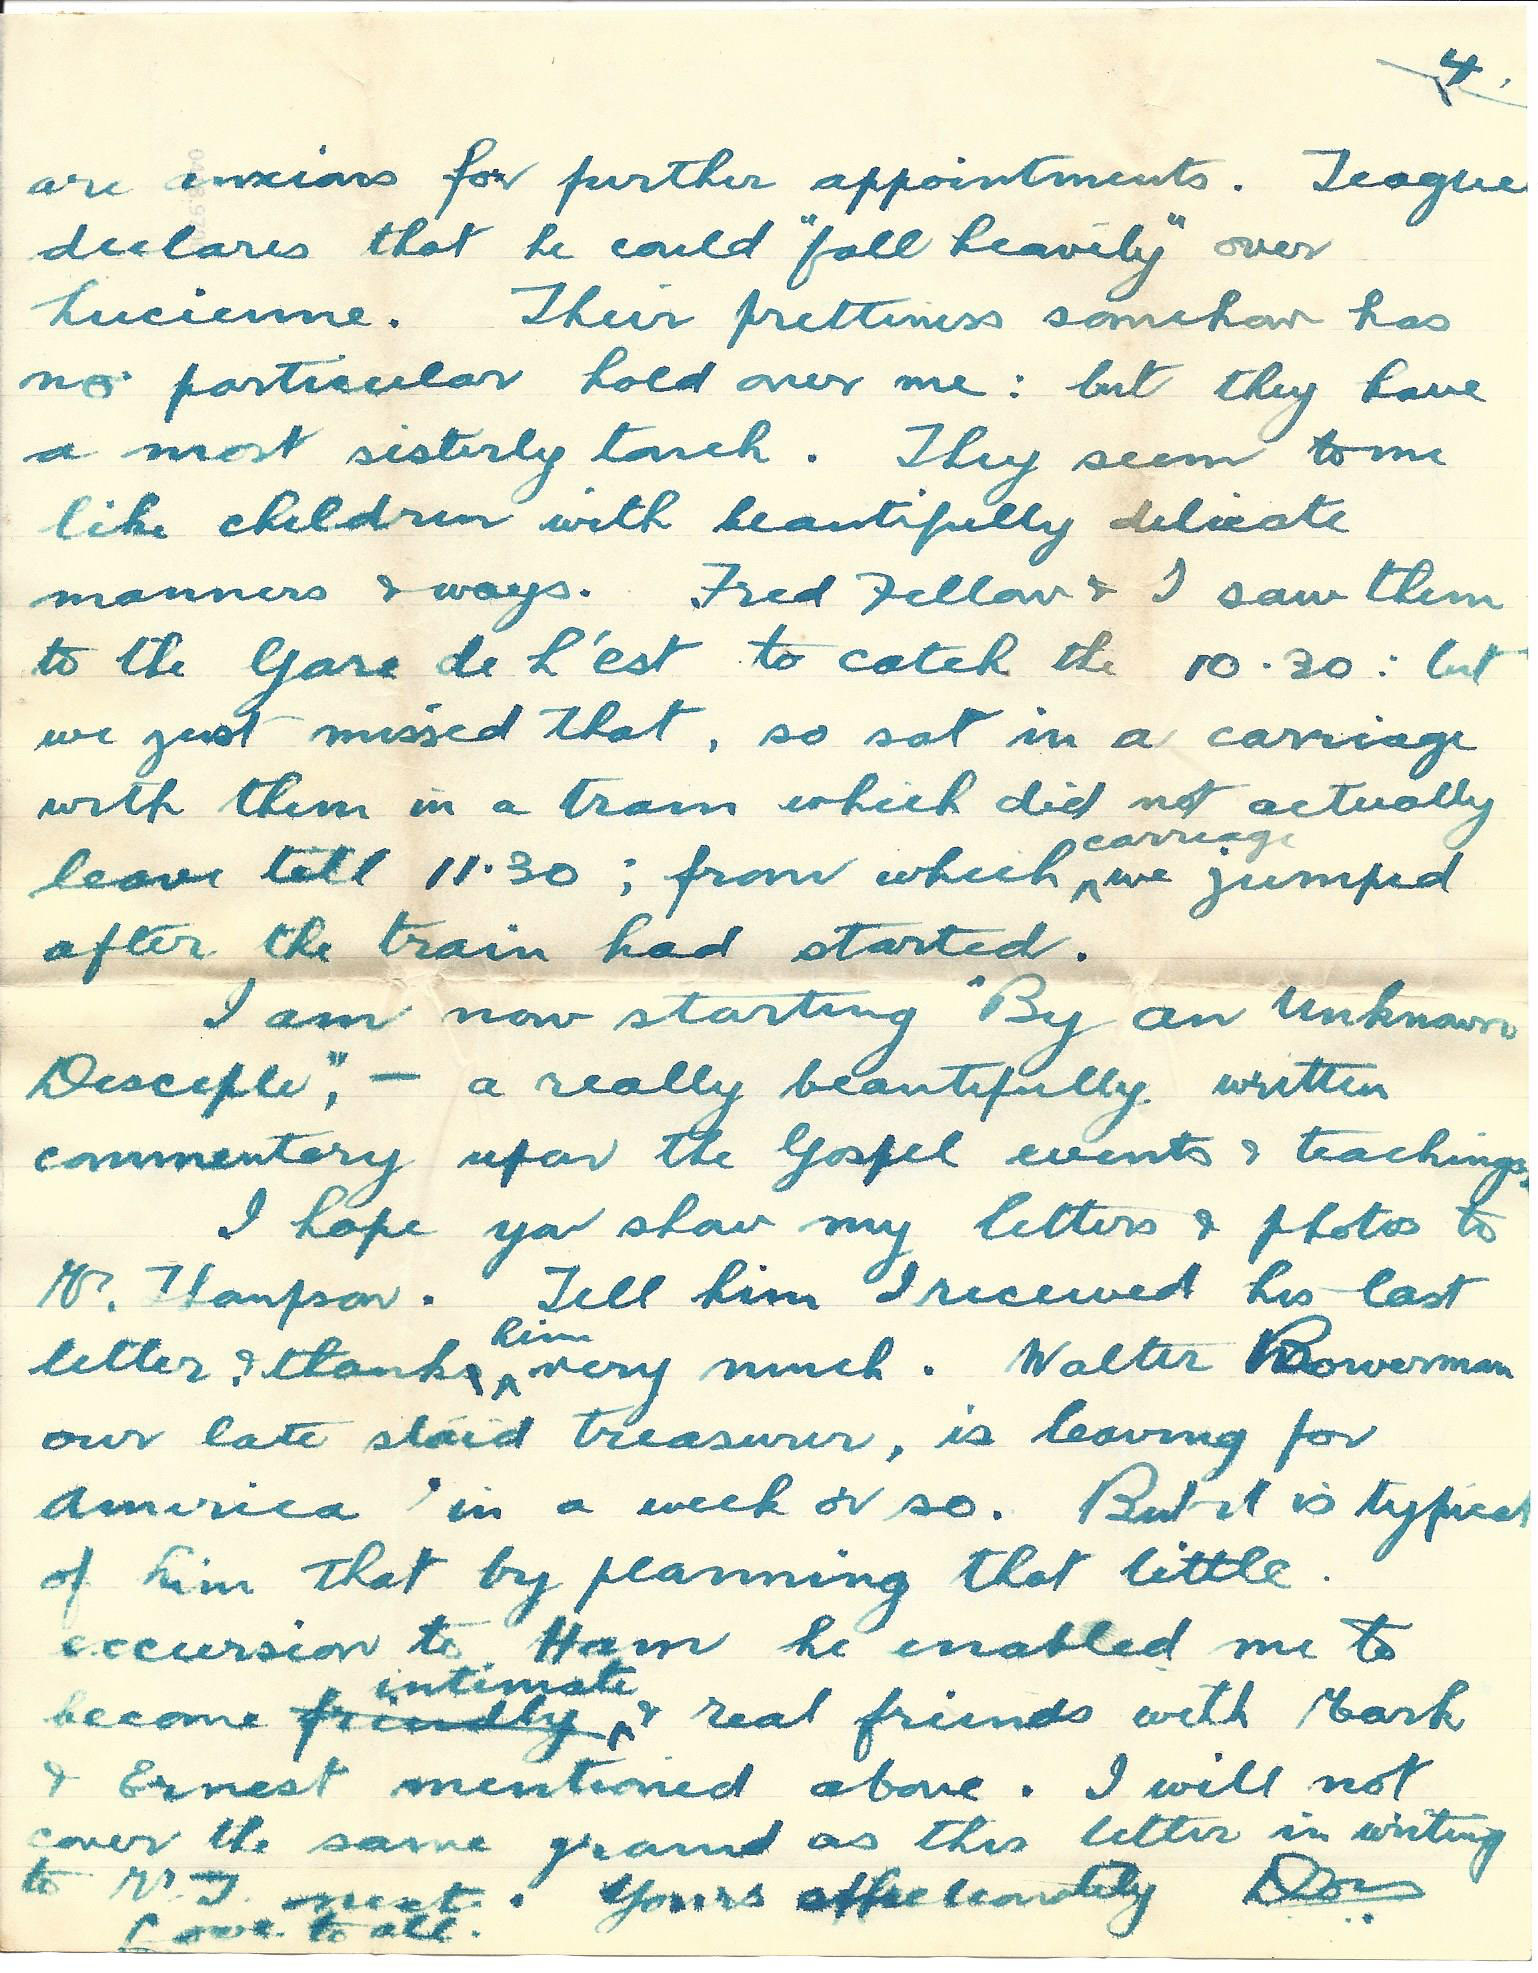 4.
are anxious for further appointments. Teague
declares that he could "fall heavily" over
Lucienne. Their prettiness somehow has
no particular hold over me: but they have
a most sisterly touch. They seem to me
like children with beautifully delicate
manners & ways. Fred Fellow & I saw them
to the Gare de L'est to catch the 10.30: but
we just missed that, so sat in a carriage
with them in a train which did not actually
leave till 11.30; from which carriage we jumped
after the train had started.
I am now starting "By an Unknown
Disciple", — a really beautifully written
commentary upon the Gospel events & teachings.
I hope you show my letters & photos to
Mr. Thompson. Tell him I received his last
letter & thank him very much. Walter Bowerman
our late staid treasurer, is leaving for
America in a week or so. But it is typical
of him that by planning that little
excursion to Ham he enabled me to
become friendly intimate & real friends with Mark
& Ernest mentioned above. I will not
cover the same ground as this letter in writing
to Mr. T. next. Yours affectionately Don
Love to all.